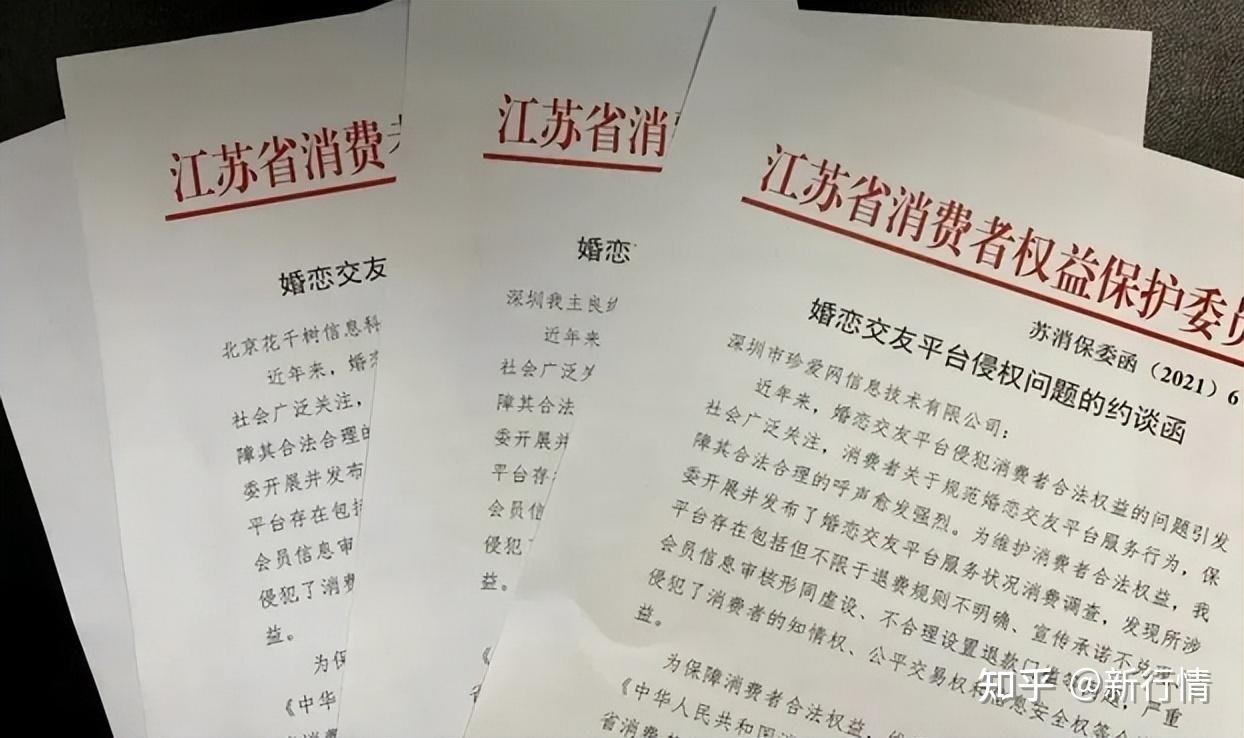 江苏省消费
婚恋交友
北京花千树信息科
近年来，婚
社会广泛关注，
障其合法合理的
委开展并发布
平台存在包括
会员信息审
侵犯了消费
益。
为保
《中华
江苏省消
婚恋
深圳我主良
近年来
社会广泛
障其合法
委开展并
平台存
会员信
侵犯
益。
江苏省消费者权益保护委员
苏消保委函（2021）6
婚恋交友平台侵权问题的约谈函
深圳市珍爱网信息技术有限公司：
近年来，婚恋交友平台侵犯消费者合法权益的问题引发
社会广泛关注，消费者关于规范婚恋交友平台服务行为，保
障其合法合理的呼声愈发强烈。为维护消费者合法权益，我
委开展并发布了婚恋交友平台服务状况消费调查，发现所涉
平台存在包括但不限于退费规则不明确、宣传承诺不
会员信息审核形同虚设、不合理设置退款门 问题，严重
侵犯了消费者的知情权、公平交易权和信息安全权等
益。
为保障消费者合法权益，
《中华人民共和国
省消费
知乎 @新行情